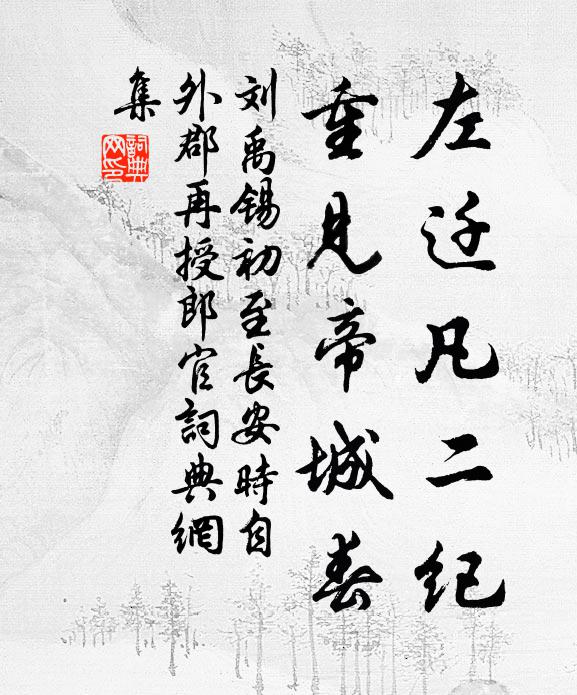 左迁凡二纪
重见帝城春
刘禹锡初至長安時自
外郡再授郎官詞典網
集
詞典
网印